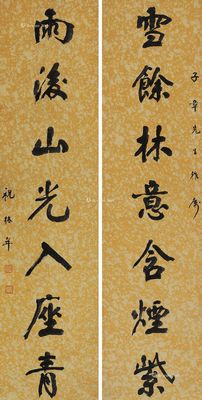 子章先生作屬
雪餘林意含煙紫
雨後山光入座青
祝椿年